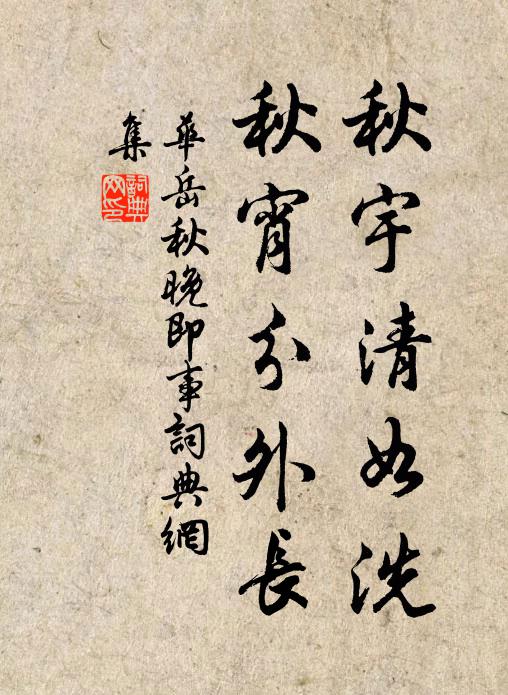 秋宇清如洗
秋宵分外長
華岳秋晚即事詞典網
集
詞典
网印